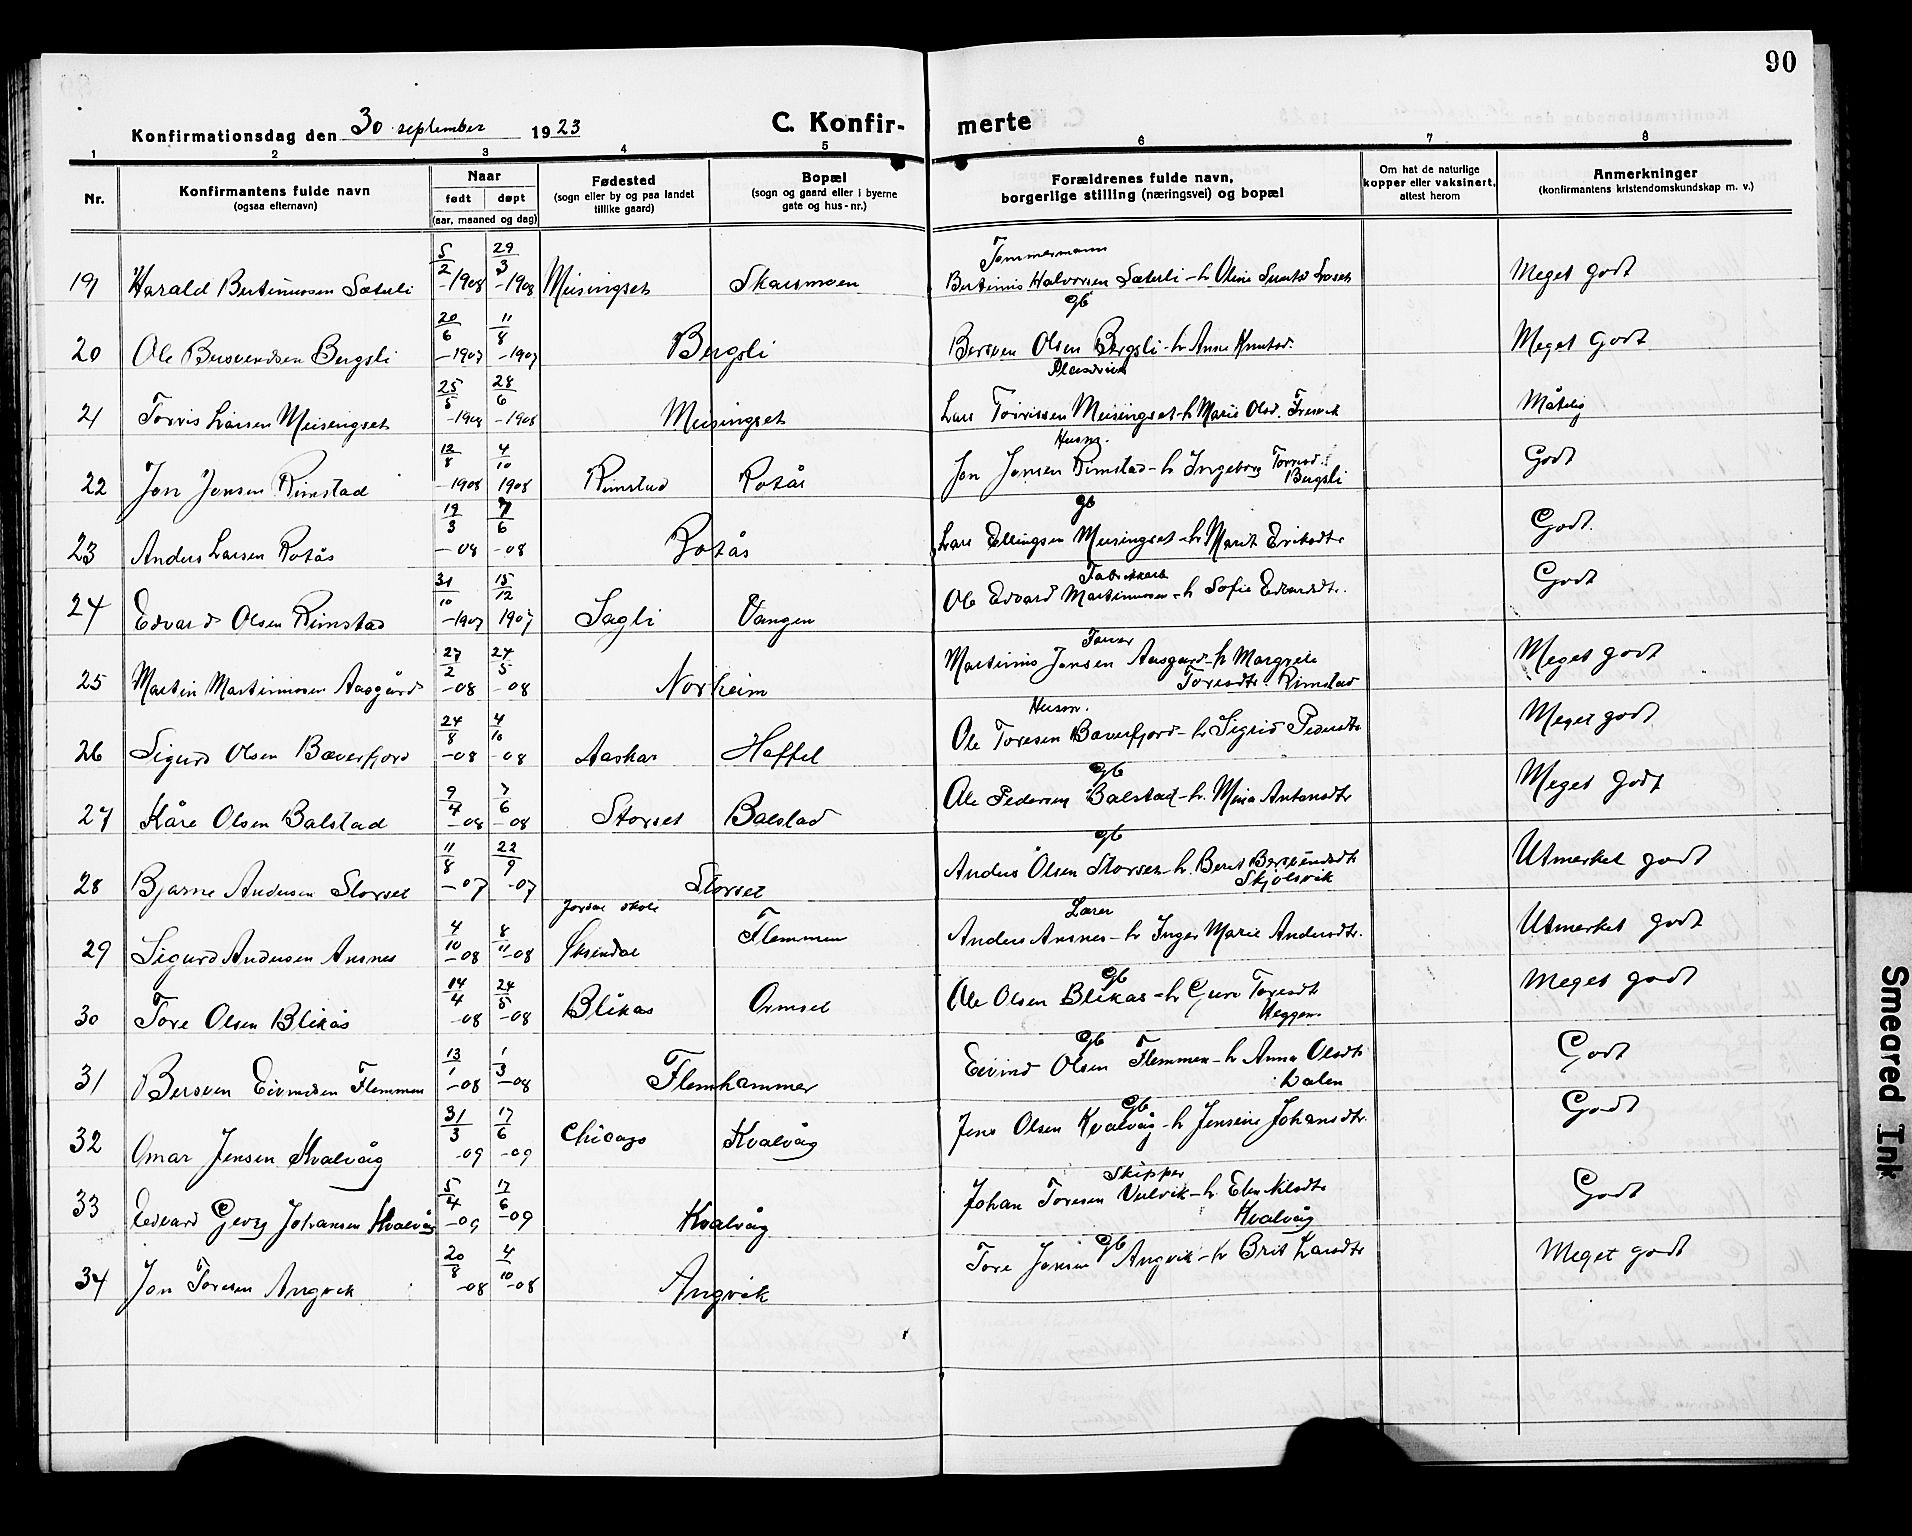 90
Konfirmationsdag den 30 september 1923 C. Konfir- merte
1 2 3 4 5 6 7 8
Nr. Konfirmantens fulde navn (ogsaa efternavn) Naar født døpt (aar, maaned og dag) Fødested (sogn eller by og paa landet tillike gaard) Bopæl (sogn og gaard eller i byerne gate og hus-nr.) Forældrenes fulde navn, borgerlige stilling (næringsvei) og bopæl Om hat de naturlige kopper eller vaksinert, attest herom Anmerkninger (konfirmantens kristendomskundskap m. v.)
Tømmermann
19 Harald Bertinussen Sæterli 5/2 -1908 29/3 -1908 Meisingset Skarsmoen Bertinus Halvorsen Sæterli - h Oline Meget godt
gb
20 Ole Bersvendsen Bergsli 20/6 -1907 11/8 -1907 Bergsli Bersven Olsen Bergsli - h Anne Knutsd. Meget Godt
21 Torris Larsen Meisingset 25/5 -1908 28/6 -1908 Meisingset Lars Torrissen Meisingset - h Marie Olsd. Måtelig
Husm.
22 Jon Jonsen Rimstad 12/8 -1908 4/10 1908 Rimstad Rotås Jon Jonsen Rimstad - h Ingeborg Torresd. Bergsli Godt
gb
23 Anders Larsen Rotås 19/3 -08 7/6 -08 Rotås Lars Ellingsen Meisingset - h Marit Eriksdtr Godt.
24 Edvard Olsen Rimstad 31/10 -1907 15/12 1907 Sagli Vangen Ole Edvard Martinussen - h Sofie Edvardsdtr. Godt
25 Martin Martinussen Aasgård 27/2 -08 24/5 -08 Norheim Martinus Jonsen Aasgard - h Margrete Toresdtr. Rimstad Meget godt
Husm.
26 Sigurd Olsen Bæverfjord 24/8 -08 4/10 -08 Aaskar Haffel Ole Toresen Bæverfjord - h Sigrid Pedersdtr Meget godt
gb
27 Kåre Olsen Balstad 9/4 -08 7/6 -08 Storset Balstad Ole Pedersen Balstad - h. Mina Antonsdtr Meget godt
gb
28 Bjarne Andersen Storset 11/8 -07 22/9 -07 Storset Anders Olsen Storset - h. Berit Bersvendsdtr Skjølsvik Utmerket godt
Lærer
29 Sigurd Andersen Aasnes 4/10 -08 8/11 -08 skole Øksendal Flemmen Anders Aasnes - h Inger Marie Andersdtr. Utmerket godt
gb
30 Tore Olsen Blikås 14/4 -08 24/5 -08 Blikås Ormset Ole Olsen Blikås - h Guro Toresdt Heggem. Meget godt
gb
31 Bersven Eivindsen Flemmen 13/1 -08 1/3 -08 Flemhammer Eivind Olsen Flemmen - h Anna Olsdtr Dalen Godt
gb
32 Omar Jensen Kvalvåg 31/3 -09 17/6 -09 Chicago Kvalvåg Jens Olsen Kvalvåg - h Jensine Johansdtr. Godt
Skipper
33 Edvard Georg Johansen Kvalvåg 5/4 -09 17/6 -09 Kvalvåg Johan Toresen Vulvik - h. Elen Nilsdtr Kvalvåg Godt
gb
34 Jon Toresen Angvik 20/8 -08 4/10 -08 Angvik Tore Jonsen Angvik - h Brit Larsdtr Meget godt
Smeared Ink